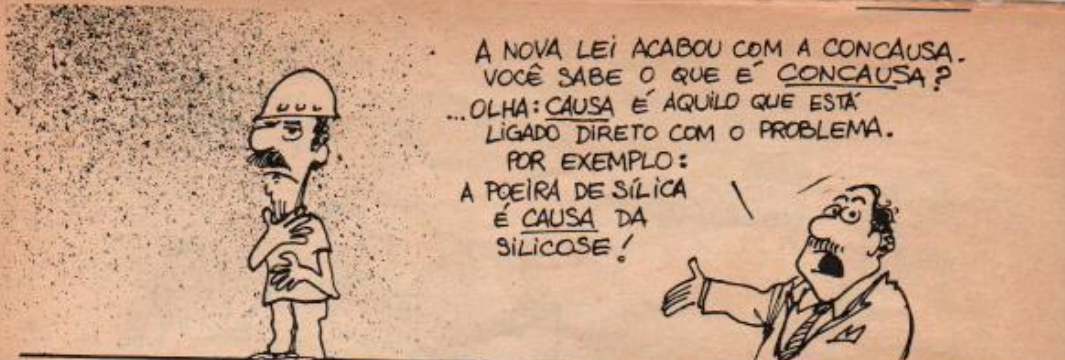 A NOVA LEI ACABOU COM A CONCAUSA.
VOCÊ SABE O QUE É CONCAUSA?
...OLHA: CAUSA É AQUILO QUE ESTÁ
LIGADO DIRETO COM O PROBLEMA.
POR EXEMPLO:
A POEIRA DE SÍLICA
É CAUSA DA
SILICOSE!